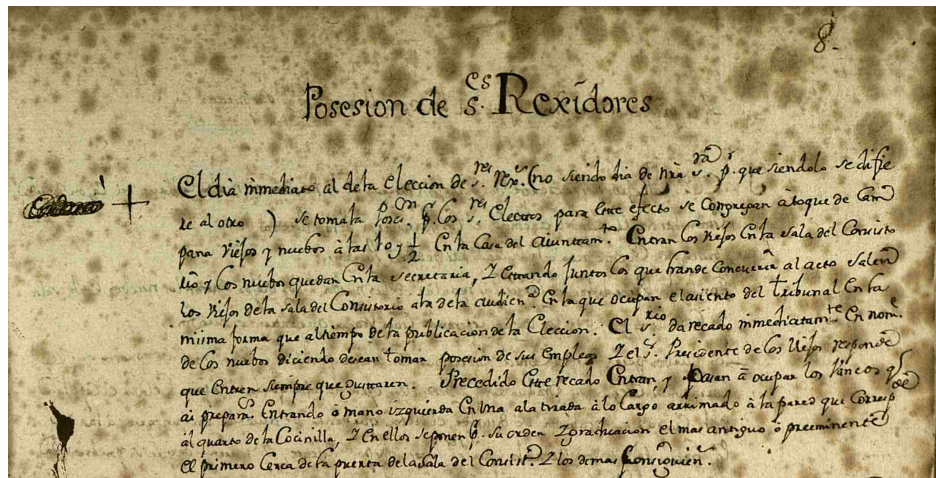 8.
Posesion de s.es Rexidores
El dia inmediato al dela Eleccion de s.res rex.s (no siendo dia de nra s.ra p.r que siendolo se difie
re al otro ) se tomala Posc.on p.r los s.res Electos para este efecto se congregan à toque de Cam
pana viejos y nuebos à las 10 y 1/2 En la Casa del Aiuntam.to Entran los viejos En la sala del Consisto
rio y los nuebos quedan En la secretaria, y estando juntos los que hande Concurrir al acto salen
los viejos dela sala del Consistorio ala dela audien.a En la que ocupan el asiento del tribunal En la
misma forma que al tiempo dela publicacion dela Eleccion. El s.rio da recado inmediatam.te En nom.e
de los nuebos diciendo desean tomar posesion de sus Empleos y el s.r Presidente de los viejos responde
que Entren siempre que gustaren. Precedido este recado Entran, y pasan à ocupar los bancos q.e
ai prepara.s Entrando à mano izquierda En una ala tirada à lo largo arrimado à la pared que Corresp.de
al quarto dela Cocinilla, y En ellos se ponen p.r su orden y graduacion el mas antiguo ò preeminente
el primero Cerca dela puerta dela sala del Consist.o y los demas Consiguien.te